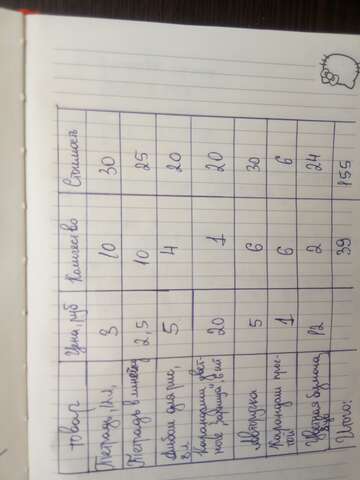 товар Цена, руб Количество Стоимость
Тетрадь, 12л, 3 10 30
Тетрадь в линейку 2,5 10 25
Альбом для рис, 5 4 20
Карандаши цвет- 20 1 20
ные
Авторучка 5 6 30
Карандаш прос- 1 6 6
той
Цветная бумага 12 2 24
Итого: 39 155